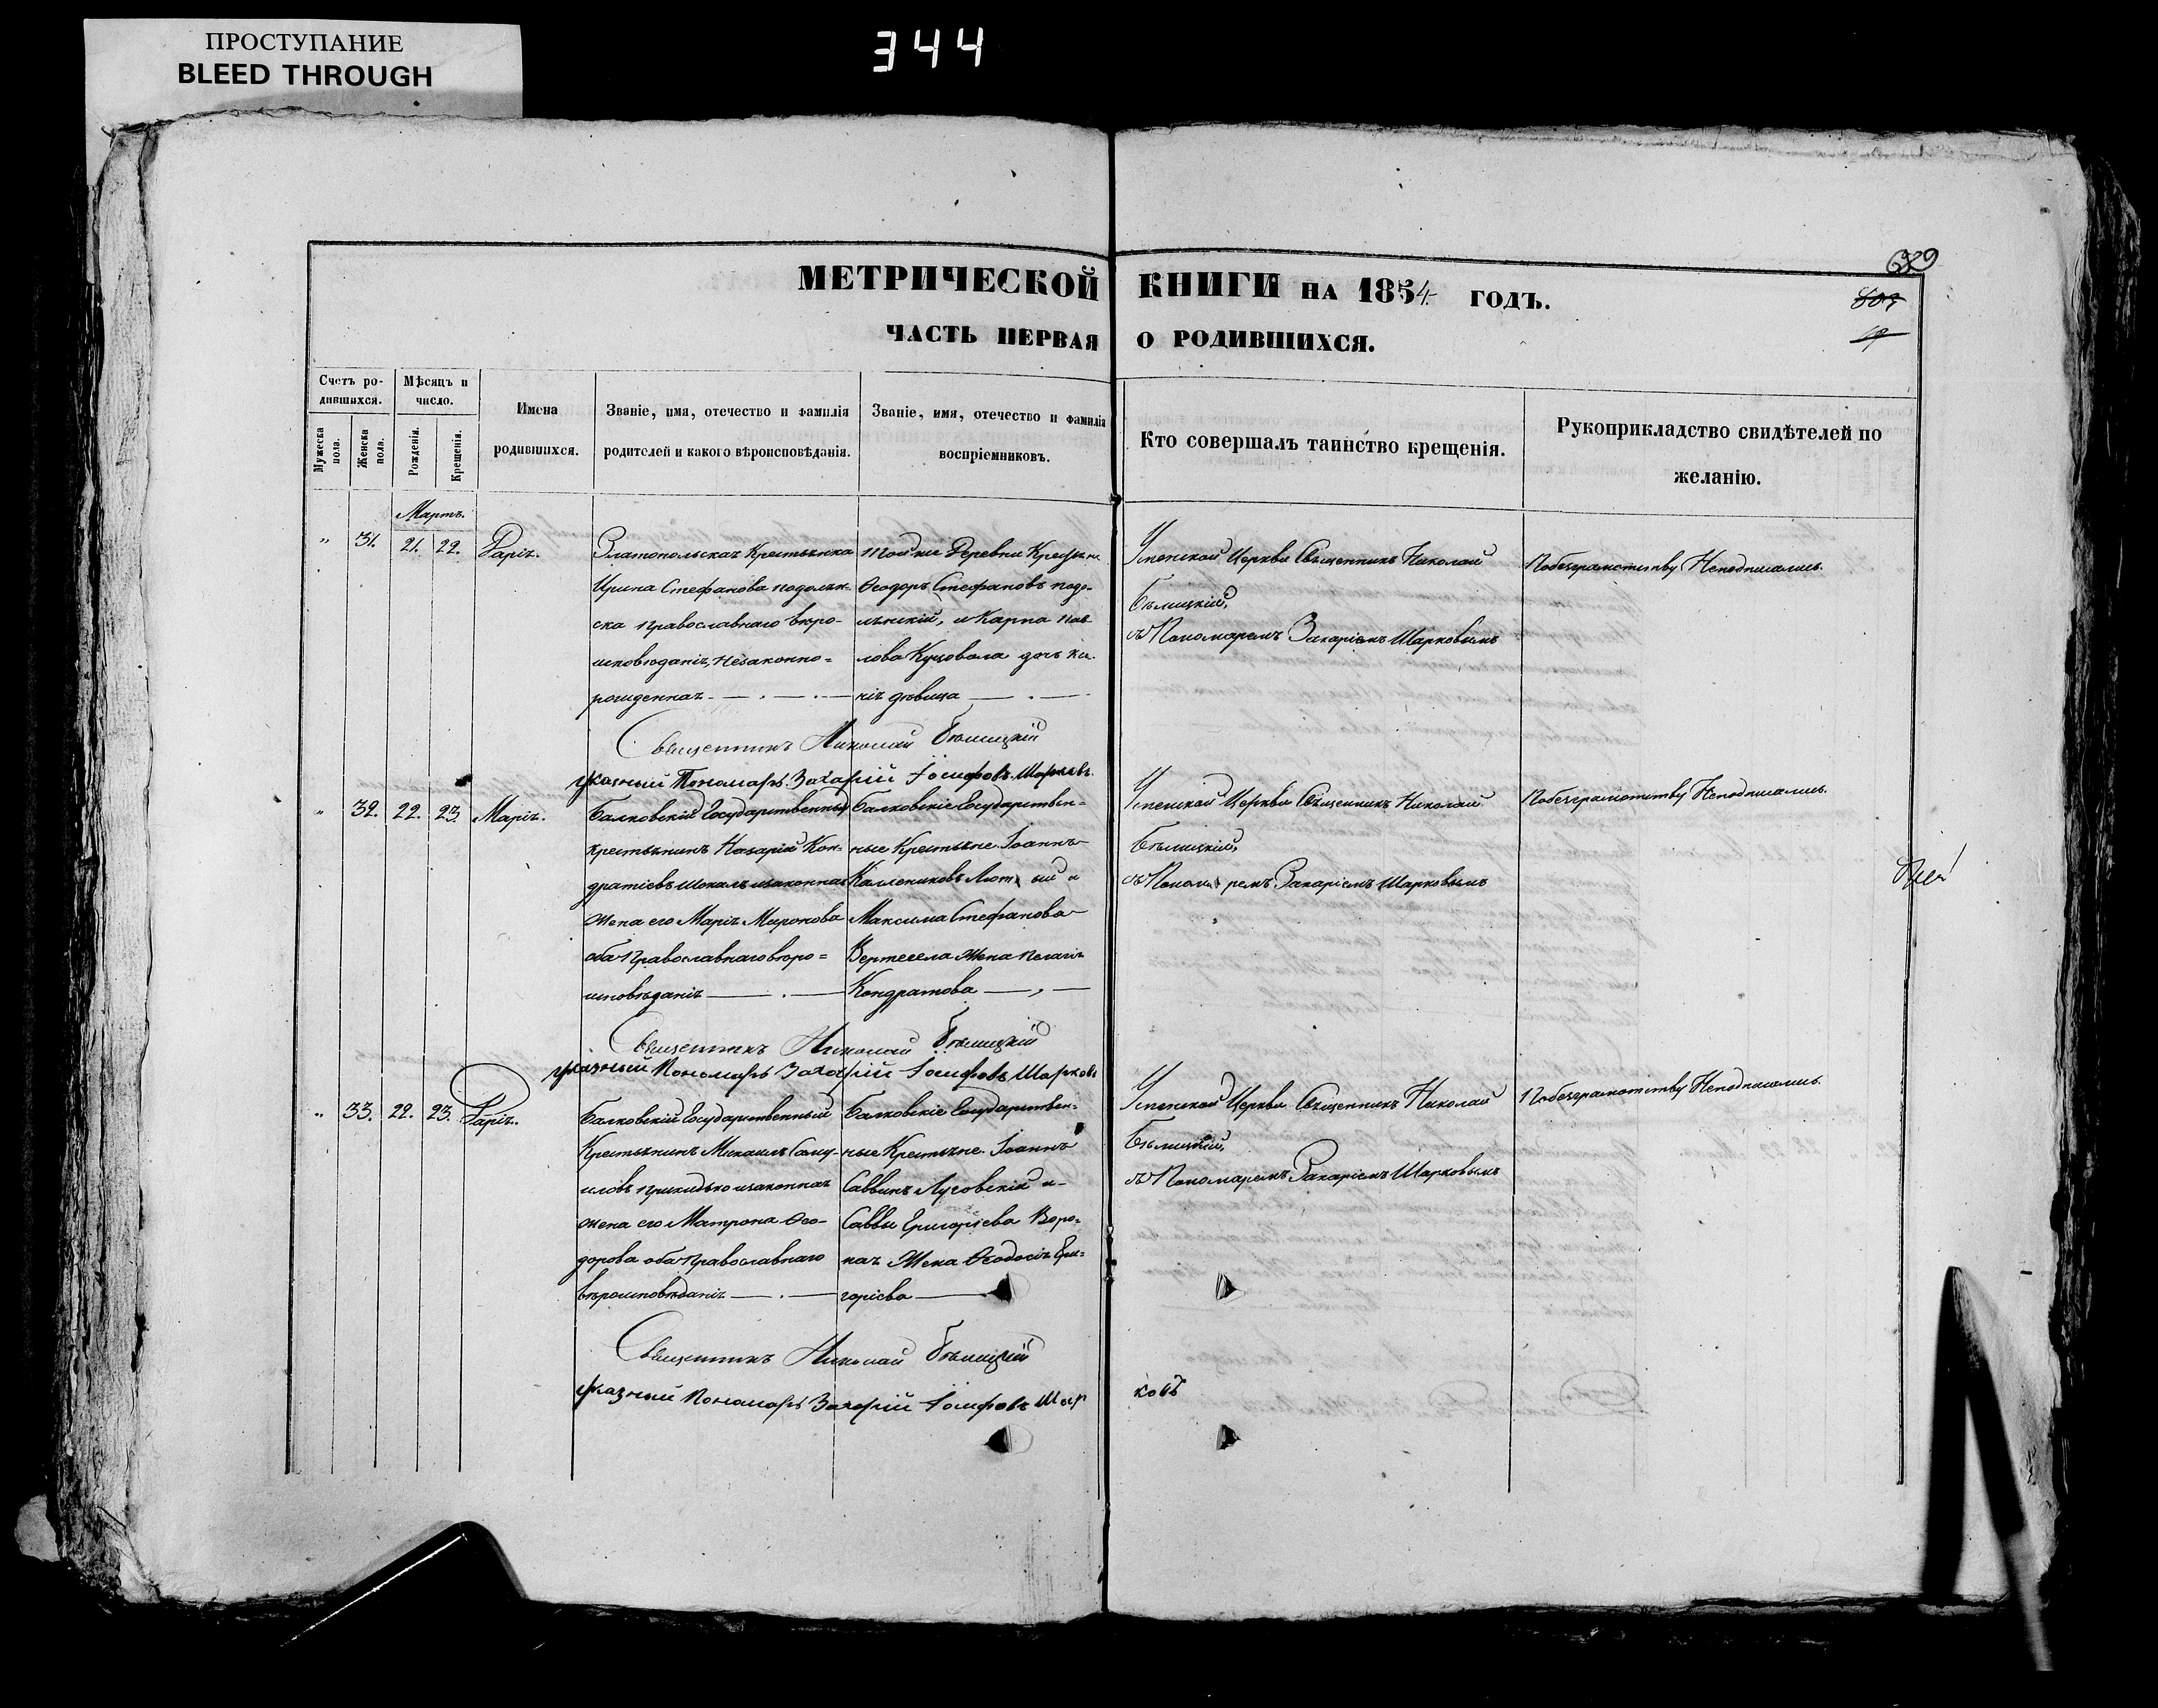 ПРОСТУПАНИЕ
BLEED THROUGH
344
МЕТРИЧЕСКОЙ КНИГИ НА 1854 ГОДЪ.
ЧАСТЬ ПЕРВАЯ О РОДИВШИХСЯ.
Счетъ родившихся.
Мужеска пола.
Женска пола.
Мѣсяцъ и число.
Рожденія.
Крещенія.
Имена родившихся.
Званіе, имя, отечество и фамилія
родителей и какого вѣроисповѣданія.
Званіе, имя, отечество и фамилія
воспріемниковъ.
Кто совершалъ таинство крещенія.
Рукоприкладство свидѣтелей по
желанію.
Мартъ.
" 31. 21. 22. Дарія.
Златопольская Крестьянка
Ирина Стефанова подолян-
ска православнаго вѣро-
исповѣданія, незаконно=
рожденная
той же Деревни
Ѳеодоръ Стефановъ подо-
лянскій, и Карпа Пав
лова дочь
дѣвица
Успенской Церкви Священникъ Николай
Бѣлицкій,
съ Пономаремъ Захаріемъ Шарковымъ
По безграмотству Неподписались.
Священникъ Николай Бѣлицкій
указный Пономарь Захарій Іосифовъ Шарковъ.
" 32. 22. 23. Марія.
Балковскій Государственный
крестьянинъ Назарій Кон-
дратіевъ и законная
жена его Марія Миронова
оба Православнаго вѣро=
исповѣданія
Балковскіе Государствен=
ные Крестьяне Іоаннъ
Каллениковъ и
Максима Стефанова
Вертегела жена Пелагія
Кондратова
Успенской Церкви Священникъ Николай
Бѣлицкій,
съ Пономаремъ Захаріемъ Шарковымъ
По безграмотству Неподписались.
Священникъ Николай Бѣлицкій
указный Пономарь Захарій Іосифовъ Шарковъ
" 33. 22. 23. Дарія.
Балковскій Государственный
Крестьянинъ Михаилъ Саму-
иловъ и законная
жена его Матрона Ѳео-
дорова оба Православнаго
вѣроисповѣданія
Балковскіе Государствен=
ные Крестьяне Іоаннъ
Саввинъ Луговскій и
Саввы Григоріева Воро=
ная Жена Ѳеодосія Гри=
горіева
Успенской Церкви Священникъ Николай
Бѣлицкій,
съ Пономаремъ Захаріемъ Шарковымъ
По безграмотству Неподписались.
Священникъ Николай Бѣлицкій
указный Пономарь Захарій Іосифовъ Шарковъ